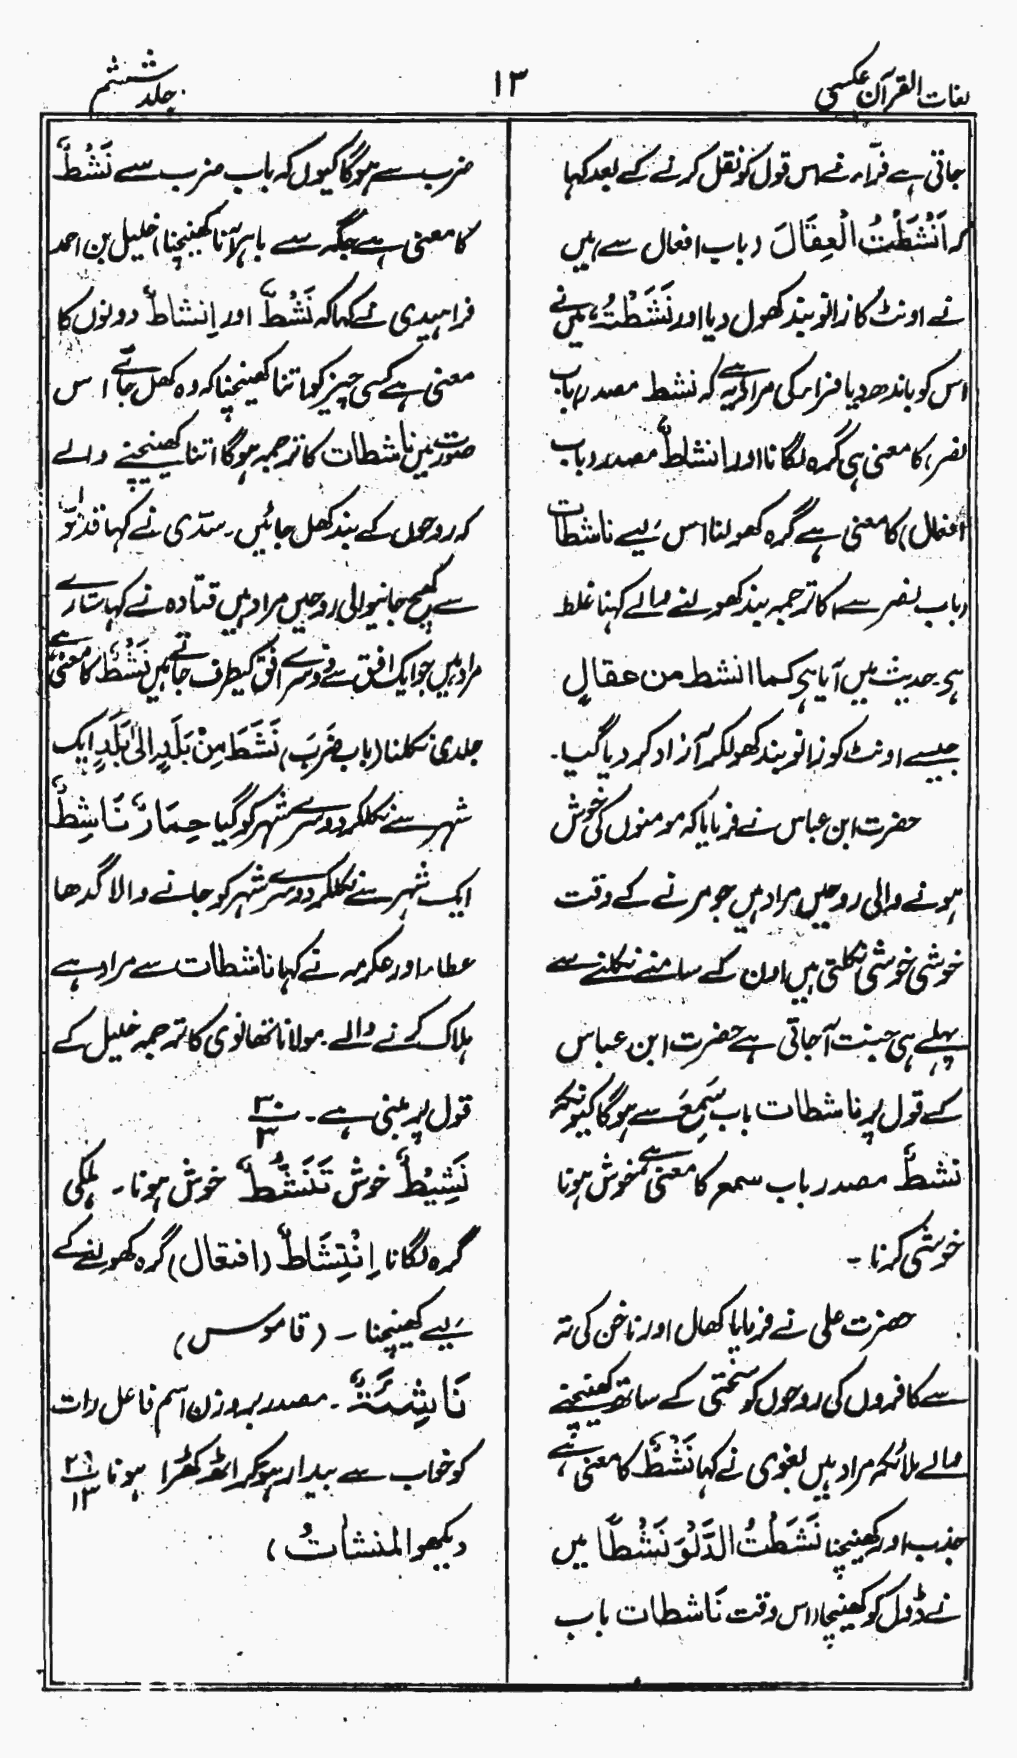 لغات القرآن عکسی
۱۳
جلد ششم
جاتی ہے فرّاء نے اس قول کو نقل کرنے کے بعد کہا
کہ اَنْشَطْتُ الْعِقَالَ (باب افعال سے) میں
نے اونٹ کا زانو بند کھول دیا اور نَشَطْتُہٗ، میں نے
اس کو باندھ دیا فراء کی مراد یہ ہے کہ نشط مصدر (باب
نصر) کا معنی ہی گرہ لگانا اور اِنشاطٌ مصدر (باب
افعال) کا معنی ہے گرہ کھولنا اس لیے ناشطات
(باب نصر سے) کا ترجمہ بند کھولنے والے کہنا غلط
ہی۔ حدیث میں آیا ہی کما انشط من عقالٍ
جیسے اونٹ کو زانو بند کھولکر آزاد کر دیا گیا۔
حضرت ابن عباس نے فرمایا کہ مومنوں کی خوش
ہونے والی روحیں مراد ہیں جو مرنے کے وقت
خوشی خوشی نکلتی ہیں اون کے سامنے نکلنے سے
پہلے ہی جنت آجاتی ہے حضرت ابن عباس
کے قول پر ناشطات باب سَمِعَ سے ہوگا کیونکہ
نشطٌ مصدر باب سمع کا معنی ہے خوش ہونا
خوشی کرنا۔
حضرت علی نے فرمایا کھال اور ناخن کی تہ
سے کافروں کی روحوں کو سختی کے ساتھ کھینچنے
والے ملائکہ مراد ہیں بغوی نے کہا نَشْطٌ کا معنی ہے
جذب اور کھینچنا نَشَطْتُ الدَّلْوَ نَشْطًا میں
نے ڈول کو کھینچا، اس وقت نَاشطات باب
ضرب سے ہوگا کیوں کہ باب ضرب سے نَشْطٌ
کا معنی ہے جگہ سے باہر لانا کھینچنا، خلیل بن احمد
فراہیدی نے کہا کہ نَشْطٌ اور اِنشاطٌ دونوں کا
معنی ہے کسی چیز کو اتنا کھینچنا کہ وہ کھل جائے اس
صورت میں ناشطات کا ترجمہ ہوگا اتنا کھینچنے والے
کہ روحوں کے بند کھل جائیں۔ سدّی نے کہا قدموں
سے کھچ جانیوالی روحیں مراد ہیں قتادہ نے کہا ستارے
مراد ہیں جو ایک افق سے دوسرے افق کیطرف جاتے ہیں نَشْطٌ کا معنی ہے
جلدی نکلنا (باب ضَرَبَ) نَشَطَ مِنْ بَلَدٍ اِلیٰ بَلَدٍ ایک
شہر سے نکلکر دوسرے شہر کو گیا حِمَارٌ نَاشِطٌ
ایک شہر سے نکلکر دوسرے شہر کو جانے والا گدھا
عطاء اور عکرمہ نے کہا ناشطات سے مراد ہے
ہلاک کرنے والے۔ مولانا تھانوی کا ترجمہ خلیل کے
قول پر مبنی ہے۔ ۳۰/۳
نَشِیْطٌ خوش تَنَشُّطٌ خوش ہونا۔ ہلکی
گرہ لگانا اِنْتِشَاطٌ (افتعال) گرہ کھولنے کے
لیے کھینچنا۔ (قاموس)
نَاشِئَۃٌ۔ مصدر بروزن اسم فاعل رات
کو خواب سے بیدار ہوکر اٹھ کھڑا ہونا ۲۹/۱۳
(دیکھو المنشاتُ)